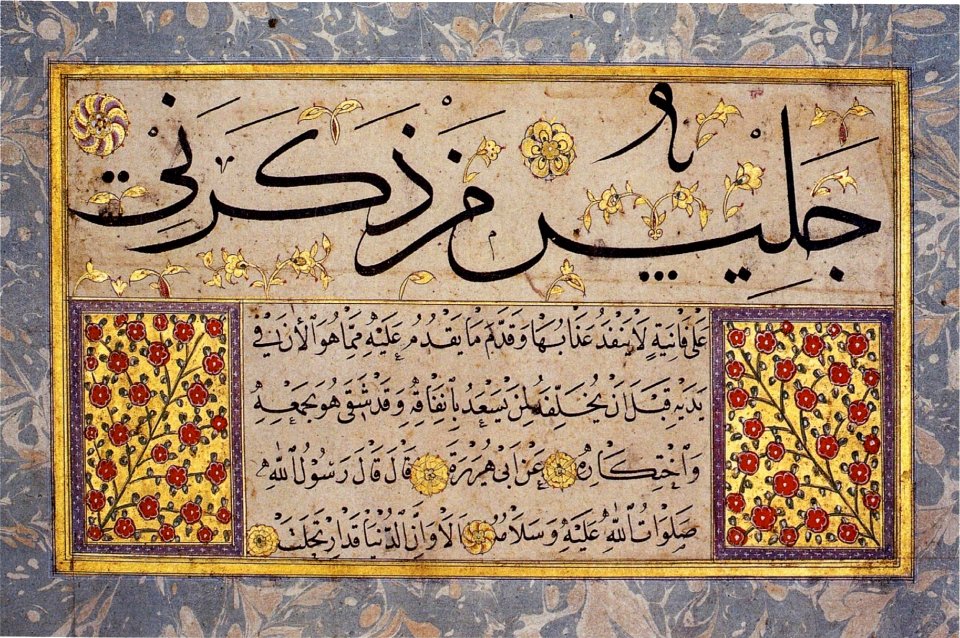 جَلِيسُ مَنْ ذَكَرَنِي
عَلَى فَانِيَةٍ لَا يَنْفَدُ عَذَابُهَا وَقَدَّمَ مَا يَقْدُمُ عَلَيْهِ مِمَّا هُوَ الْأَنَ فِي
يَدَيْهِ قَبْلَ اَنْ يُخَلِّفَهُ لِمَنْ يَسْعَدُ بِاِنْفَاقِهِ وَقَدْ شَقِيَ هُوَ بِجَمْعِهِ
وَاحْتِكَارِهِ عَنْ اَبِى هُرَيْرَةَ قَالَ قَالَ رَسُولُ اللّٰهِ
صَلَوَاتُ اللّٰهِ عَلَيْهِ وَسَلَامُهُ اَلَا وَاِنَّ الدُّنْيَا قَدِ ارْتَحَلَتْ